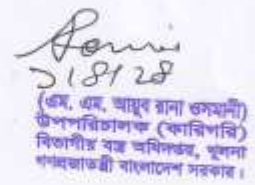 ১।৪।২৪
(এম, এম, আয়ুব রানা ওসমানী)
উপপরিচালক (কারিগরি)
বিভাগীয় বস্ত্র অধিদপ্তর, খুলনা
গণপ্রজাতন্ত্রী বাংলাদেশ সরকার।